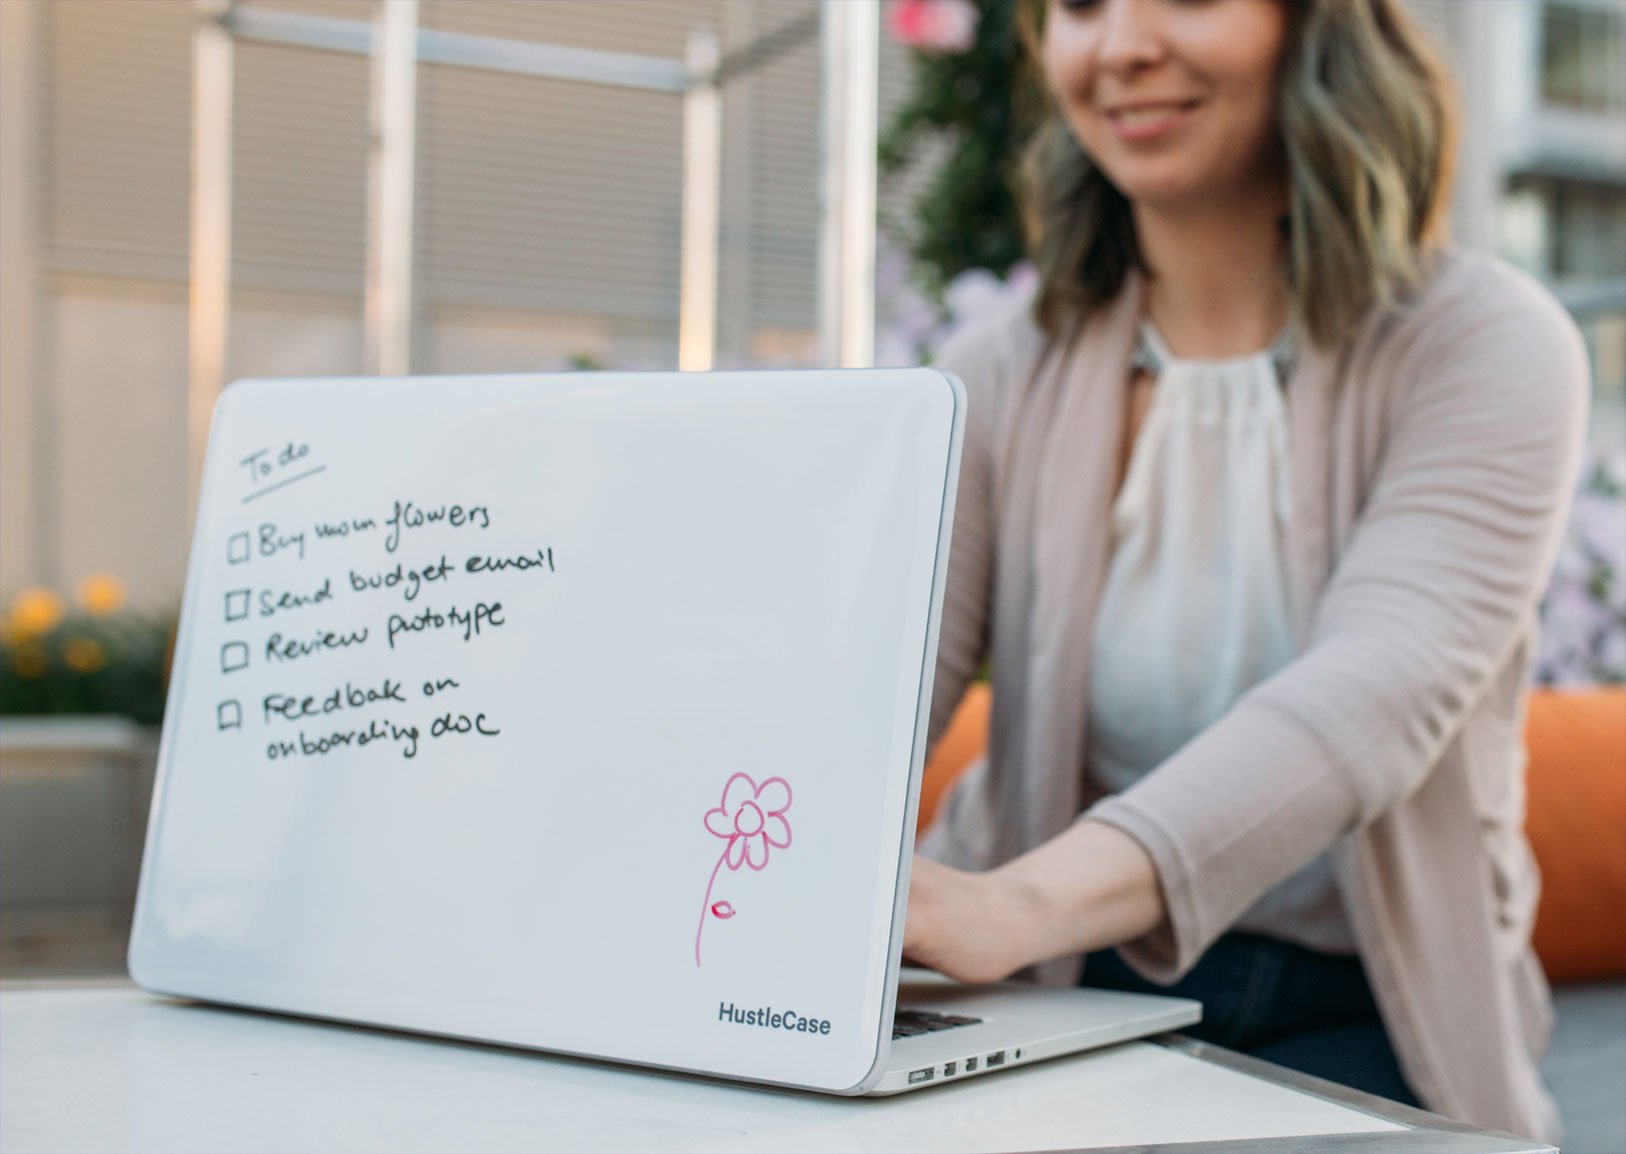 To do
Buy mom flowers
Send budget email
Review prototype
Feedbak on
onboarding doc
HustleCase